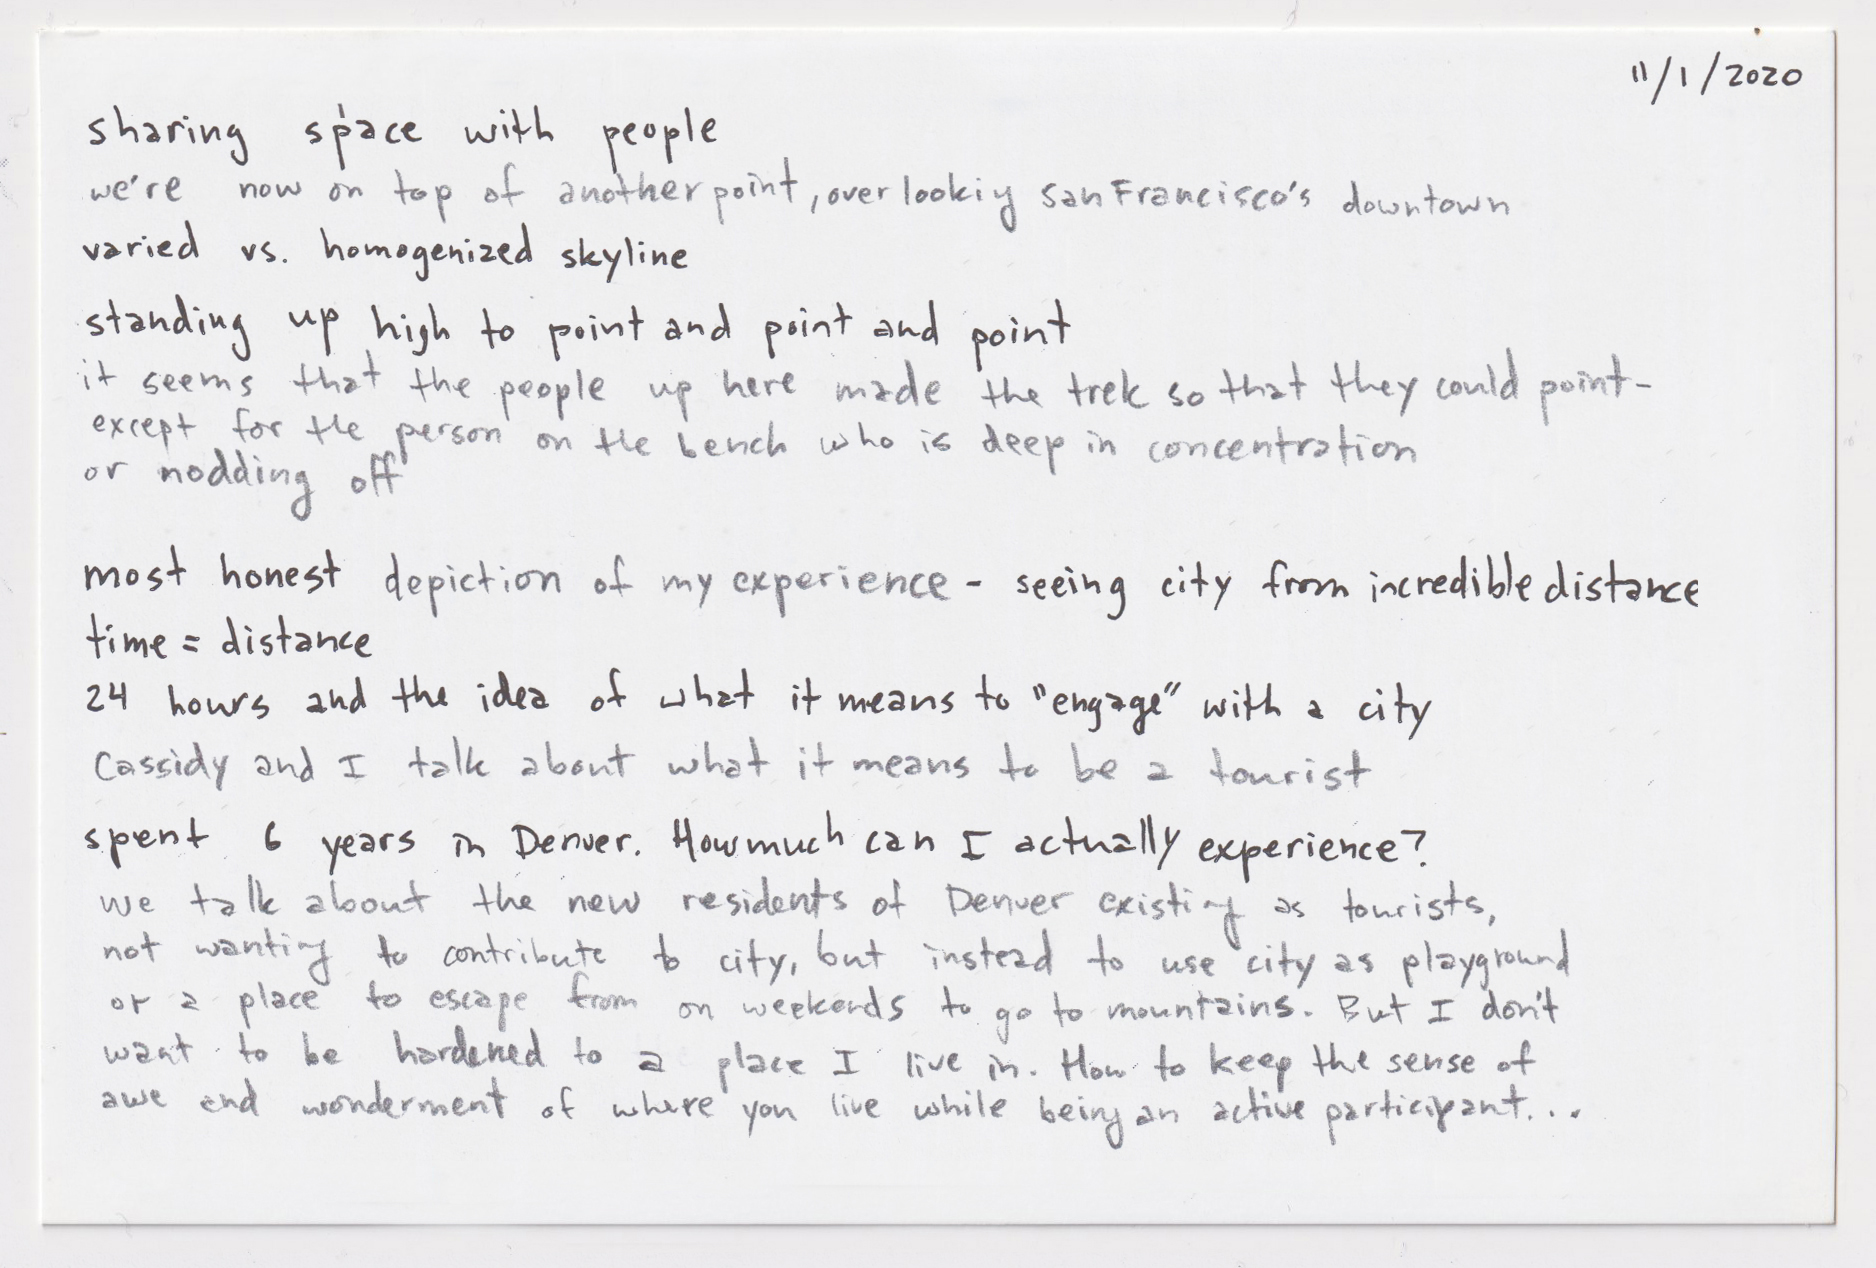 11/1/2020
sharing space with people
we're now on top of another point, overlooking San Francisco's downtown
varied vs. homogenized skyline
standing up high to point and point and point
it seems that the people up here made the trek so that they could point-
except for the person on the bench who is deep in concentration
or nodding off
most honest depiction of my experience - seeing city from incredible distance
time = distance
24 hours and the idea of what it means to "engage" with a city
Cassidy and I talk about what it means to be a tourist
spent 6 years in Denver. How much can I actually experience?
we talk about the new residents of Denver existing as tourists,
not wanting to contribute to city, but instead to use city as playground
or a place to escape from on weekends to go to mountains. But I don't
want to be hardened to a place I live in. How to keep the sense of
awe and wonderment of where you live while being an active participant...